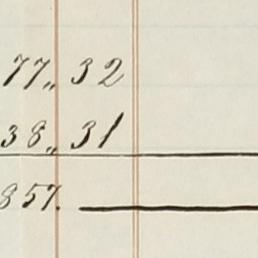 77,, 32
38,, 31
857.